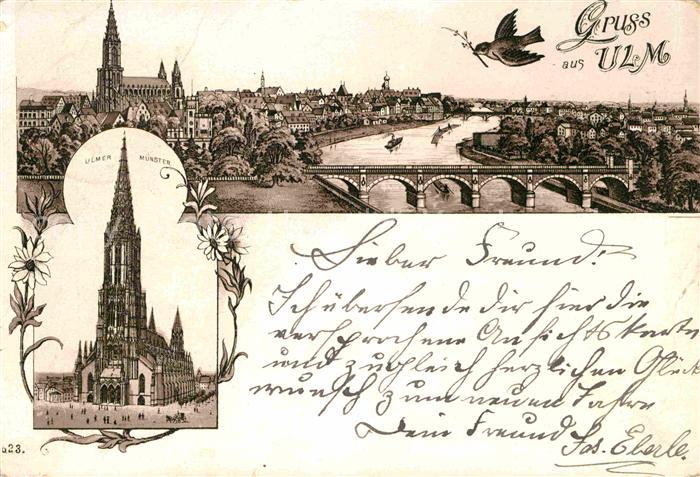 Gruss
aus ULM
ULMER MÜNSTER
Lieber Freund!
Ich übersende dir hier die
versprochene Ansichtskarte
und zugleich herzlichen Glück
wunsch zum neuen Jahre
Dein Freund
Jos. Eberle.
623.